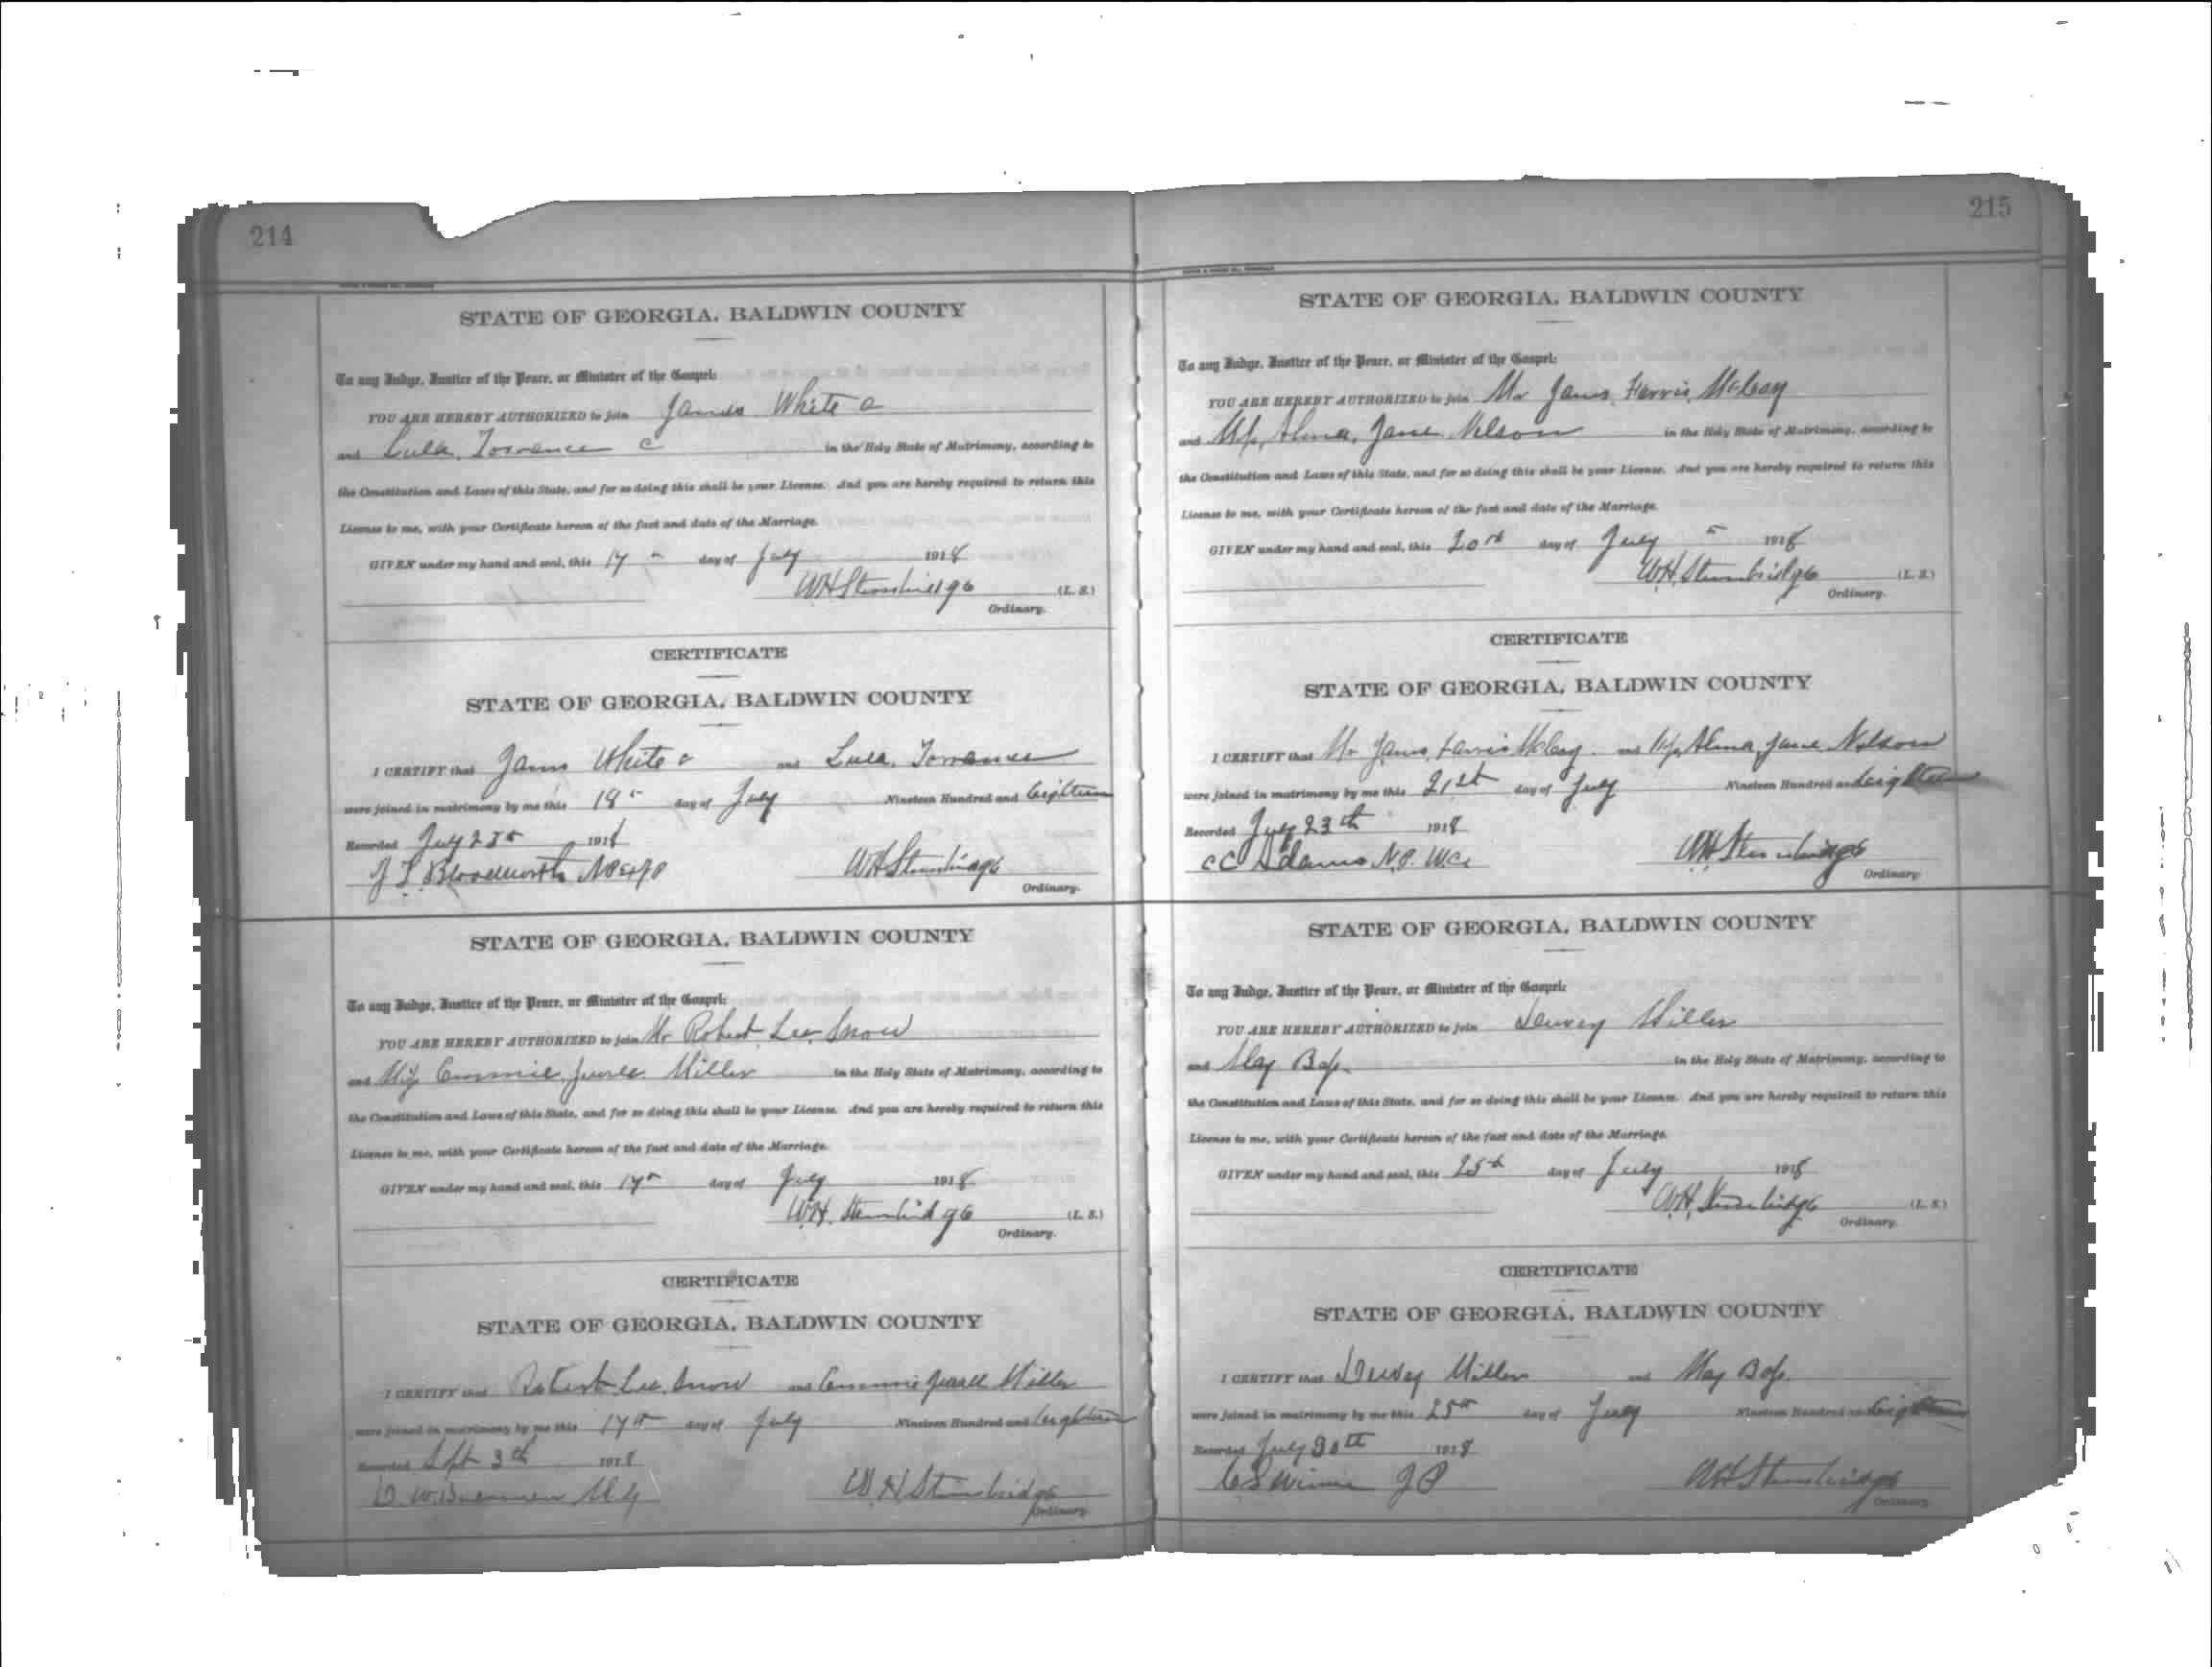 214
STATE OF GEORGIA, BALDWIN COUNTY
To any Judge, Justice of the Peace, or Minister of the Gospel:
YOU ARE HEREBY AUTHORIZED to join James White c
and Lula Torrance c in the Holy State of Matrimony, according to
the Constitution and Laws of this State, and for so doing this shall be your License. And you are hereby required to return this
License to me, with your Certificate hereon of the fact and date of the Marriage.
GIVEN under my hand and seal, this 17 day of July 1918
WH Stembridge (L. S.)
Ordinary.
CERTIFICATE
STATE OF GEORGIA, BALDWIN COUNTY
I CERTIFY that James White c and Lula Torrance
were joined in matrimony by me this 18 day of July Nineteen Hundred and Eighteen
Recorded July 1918
Bloodworth WH Stembridge
Ordinary.
STATE OF GEORGIA, BALDWIN COUNTY
To any Judge, Justice of the Peace, or Minister of the Gospel:
YOU ARE HEREBY AUTHORIZED to join Mr Robert Lee Snow
and Miss Miller in the Holy State of Matrimony, according to
the Constitution and Laws of this State, and for so doing this shall be your License. And you are hereby required to return this
License to me, with your Certificate hereon of the fact and date of the Marriage.
GIVEN under my hand and seal, this 17th day of July 1918
W.H. Stembridge (L. S.)
Ordinary.
CERTIFICATE
STATE OF GEORGIA, BALDWIN COUNTY
I CERTIFY that Robert Lee Snow and Miller
were joined in matrimony by me this 17th day of July Nineteen Hundred and Eighteen
Recorded Sept 3th 1918
M.G. W H Stembridge
Ordinary.
215
STATE OF GEORGIA, BALDWIN COUNTY
To any Judge, Justice of the Peace, or Minister of the Gospel:
YOU ARE HEREBY AUTHORIZED to join Mr James Harris
and Miss Alma Jane Nelson in the Holy State of Matrimony, according to
the Constitution and Laws of this State, and for so doing this shall be your License. And you are hereby required to return this
License to me, with your Certificate hereon of the fact and date of the Marriage.
GIVEN under my hand and seal, this 20th day of July 1918
W.H. Stembridge (L. S.)
Ordinary.
CERTIFICATE
STATE OF GEORGIA, BALDWIN COUNTY
I CERTIFY that Mr James Harris and Miss Alma Jane Nelson
were joined in matrimony by me this 21st day of July Nineteen Hundred and Eighteen
Recorded July 23th 1918
CC Adams N.P. WH Stembridge
Ordinary
STATE OF GEORGIA, BALDWIN COUNTY
To any Judge, Justice of the Peace, or Minister of the Gospel:
YOU ARE HEREBY AUTHORIZED to join Dewey Miller
and May Bass in the Holy State of Matrimony, according to
the Constitution and Laws of this State, and for so doing this shall be your License. And you are hereby required to return this
License to me, with your Certificate hereon of the fact and date of the Marriage.
GIVEN under my hand and seal, this 25th day of July 1918
W.H. Stembridge (L. S.)
Ordinary.
CERTIFICATE
STATE OF GEORGIA, BALDWIN COUNTY
I CERTIFY that Dewey Miller and May Bass
were joined in matrimony by me this 25th day of July Nineteen Hundred and Eighteen
Recorded July 30th 1918
JP WH Stembridge
Ordinary.